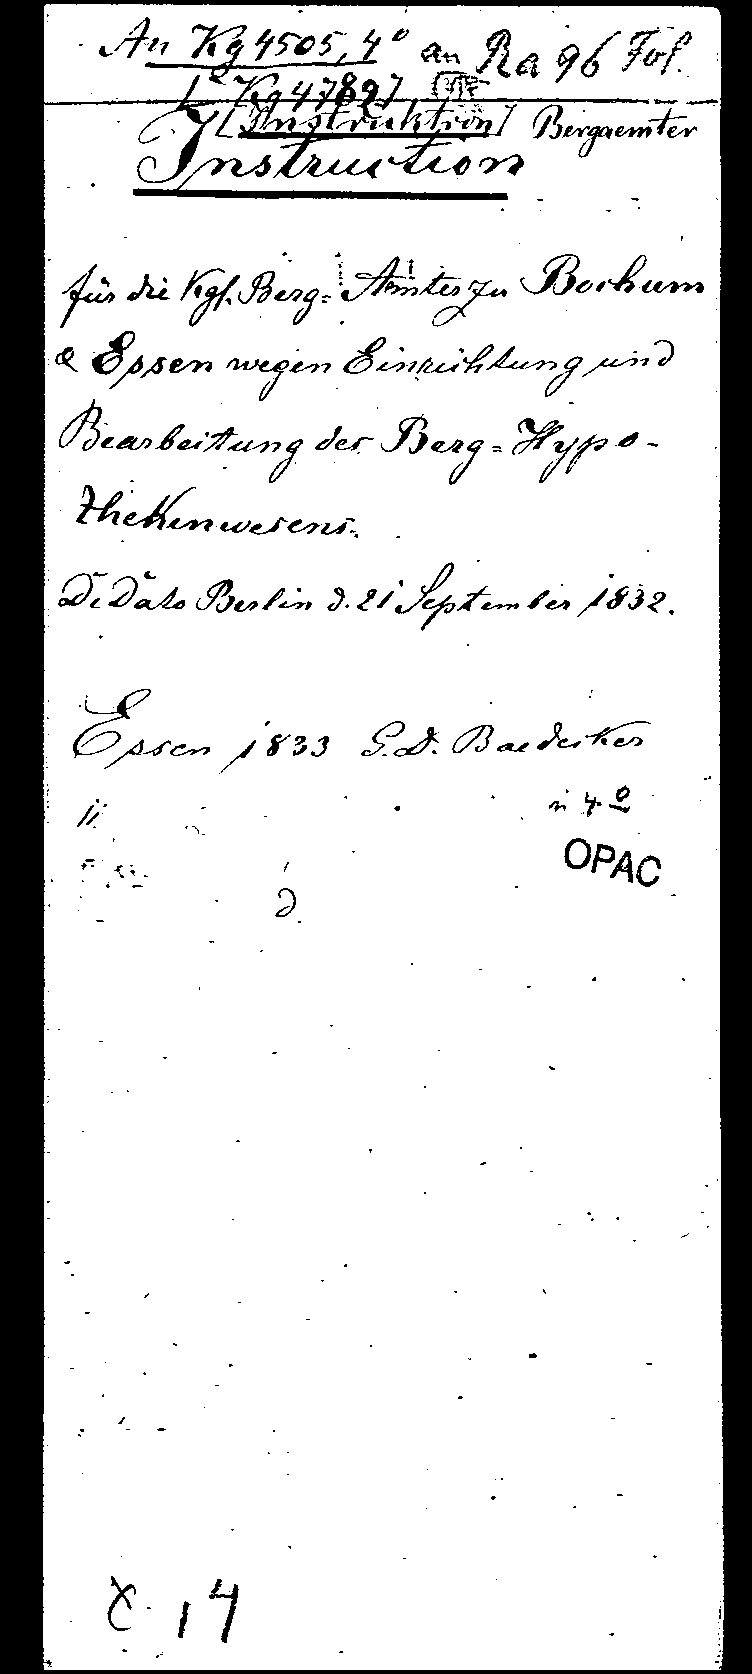 An Kg 4505, 4° an Ra 96 Fol.
[Kg 4789]
[Instruktion] Bergaemter
Instruction
für die Kgl. Berg= Ämter zu Bochum
& Essen wegen Einrichtung und
Bearbeitung des Berg=Hypo-
thekenwesens.
De Dato Berlin d. 21 September 1832.
Essen 1833 G. D. Baedeker
in 4°
OPAC
14